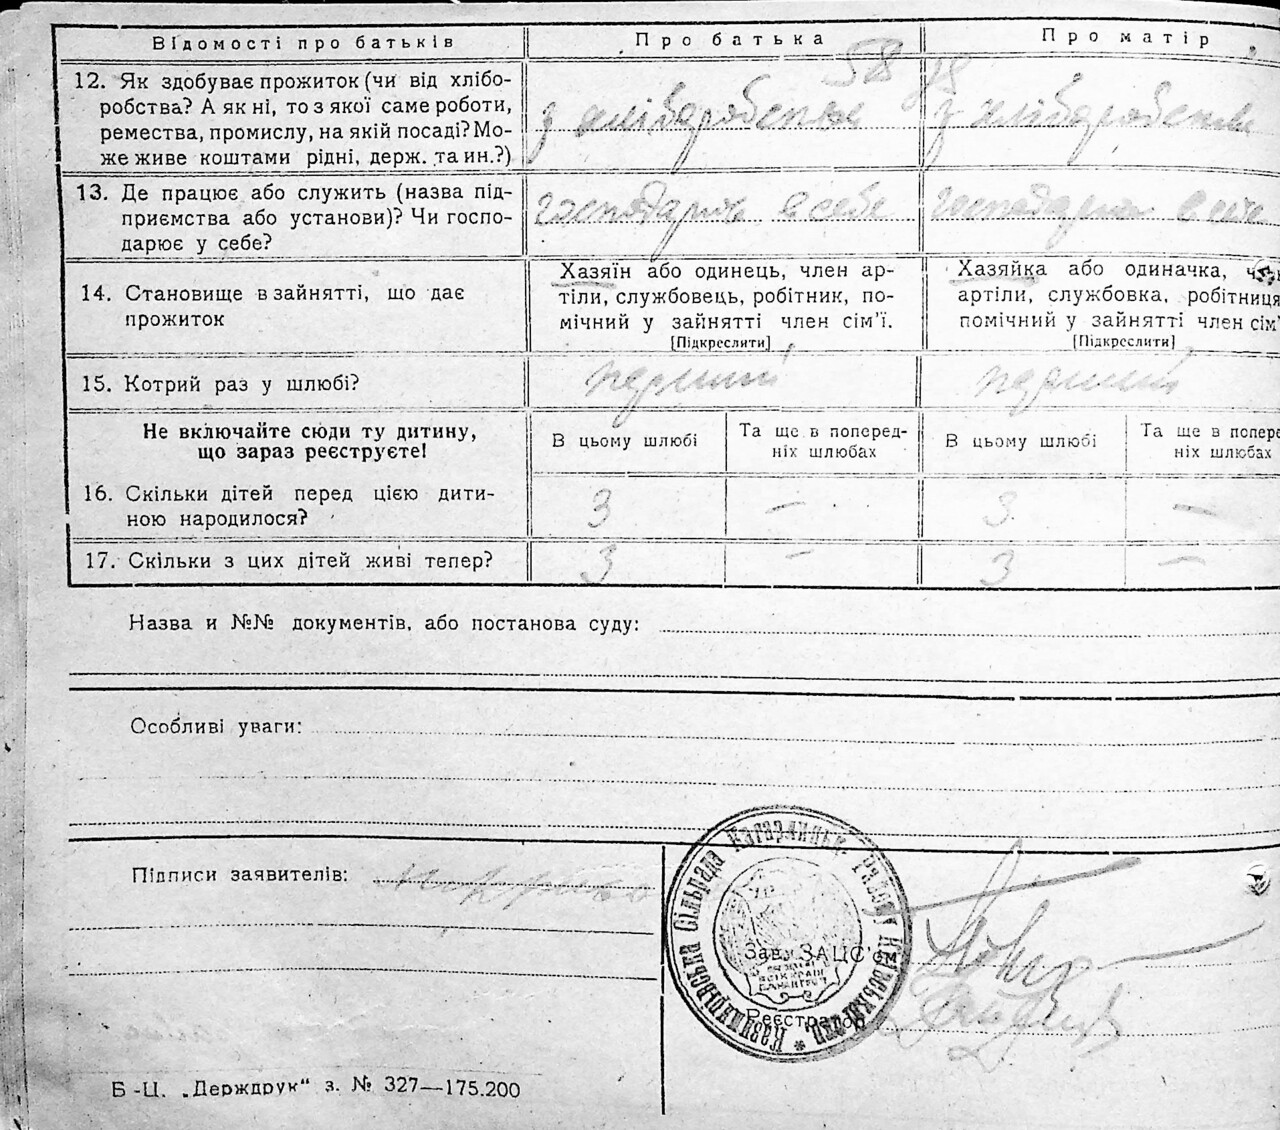 Відомості про батьків
Про батька
Про матір
58
12. Як здобуває прожиток (чи від хлібо-
робства? А як ні, то з якої саме роботи,
ремества, промислу, на якій посаді? Мо-
же живе коштами рідні, держ. та ин.?)
з хліборобства
з хліборобства
13. Де працює або служить (назва під-
приємства або установи)? Чи госпо-
дарює у себе?
господарить в себе
господарить в себе
14. Становище в зайнятті, що дає
прожиток
Хазяїн або одинець, член ар-
тіли, службовець, робітник, по-
мічний у зайнятті член сім'ї.
[Підкреслити]
Хазяйка або одиначка,
артіли, службовка, робітниця
помічний у зайнятті член сім'
[Підкреслити]
15. Котрий раз у шлюбі?
перший
перший
Не включайте сюди ту дитину,
що зараз реєструєте!
В цьому шлюбі
Та ще в поперед-
ніх шлюбах
В цьому шлюбі
Та ще в попере
ніх шлюбах
16. Скільки дітей перед цією дити-
ною народилося?
3
—
3
—
17. Скільки з цих дітей живі тепер?
3
—
3
—
Назва и №№ документів, або постанова суду:
Особливі уваги:
Підписи заявителів:
Сільрада Кагарлицьк. Району
Зав. ЗАЦС'ом
Реєстратор
Б-Ц. „Держдрук“ з. № 327—175.200